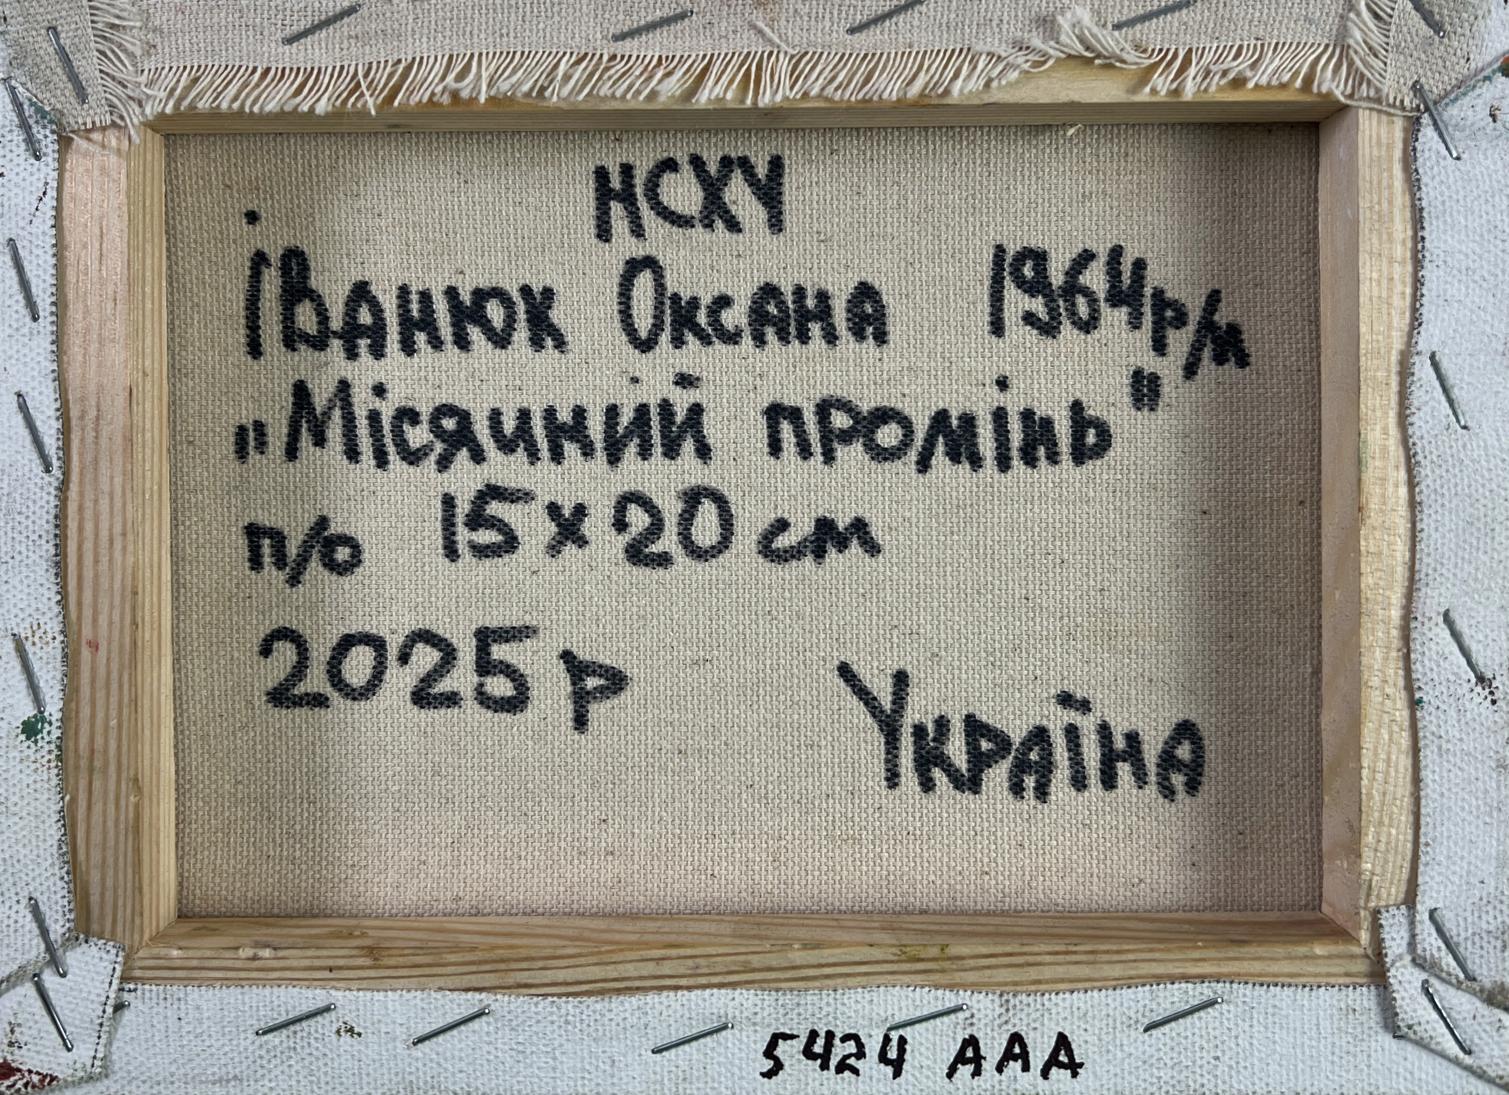 НСХУ
Іванюк Оксана 1964р/н
„Місячний промінь"
п/о 15×20 см
2025 р
Україна
5424 AAA